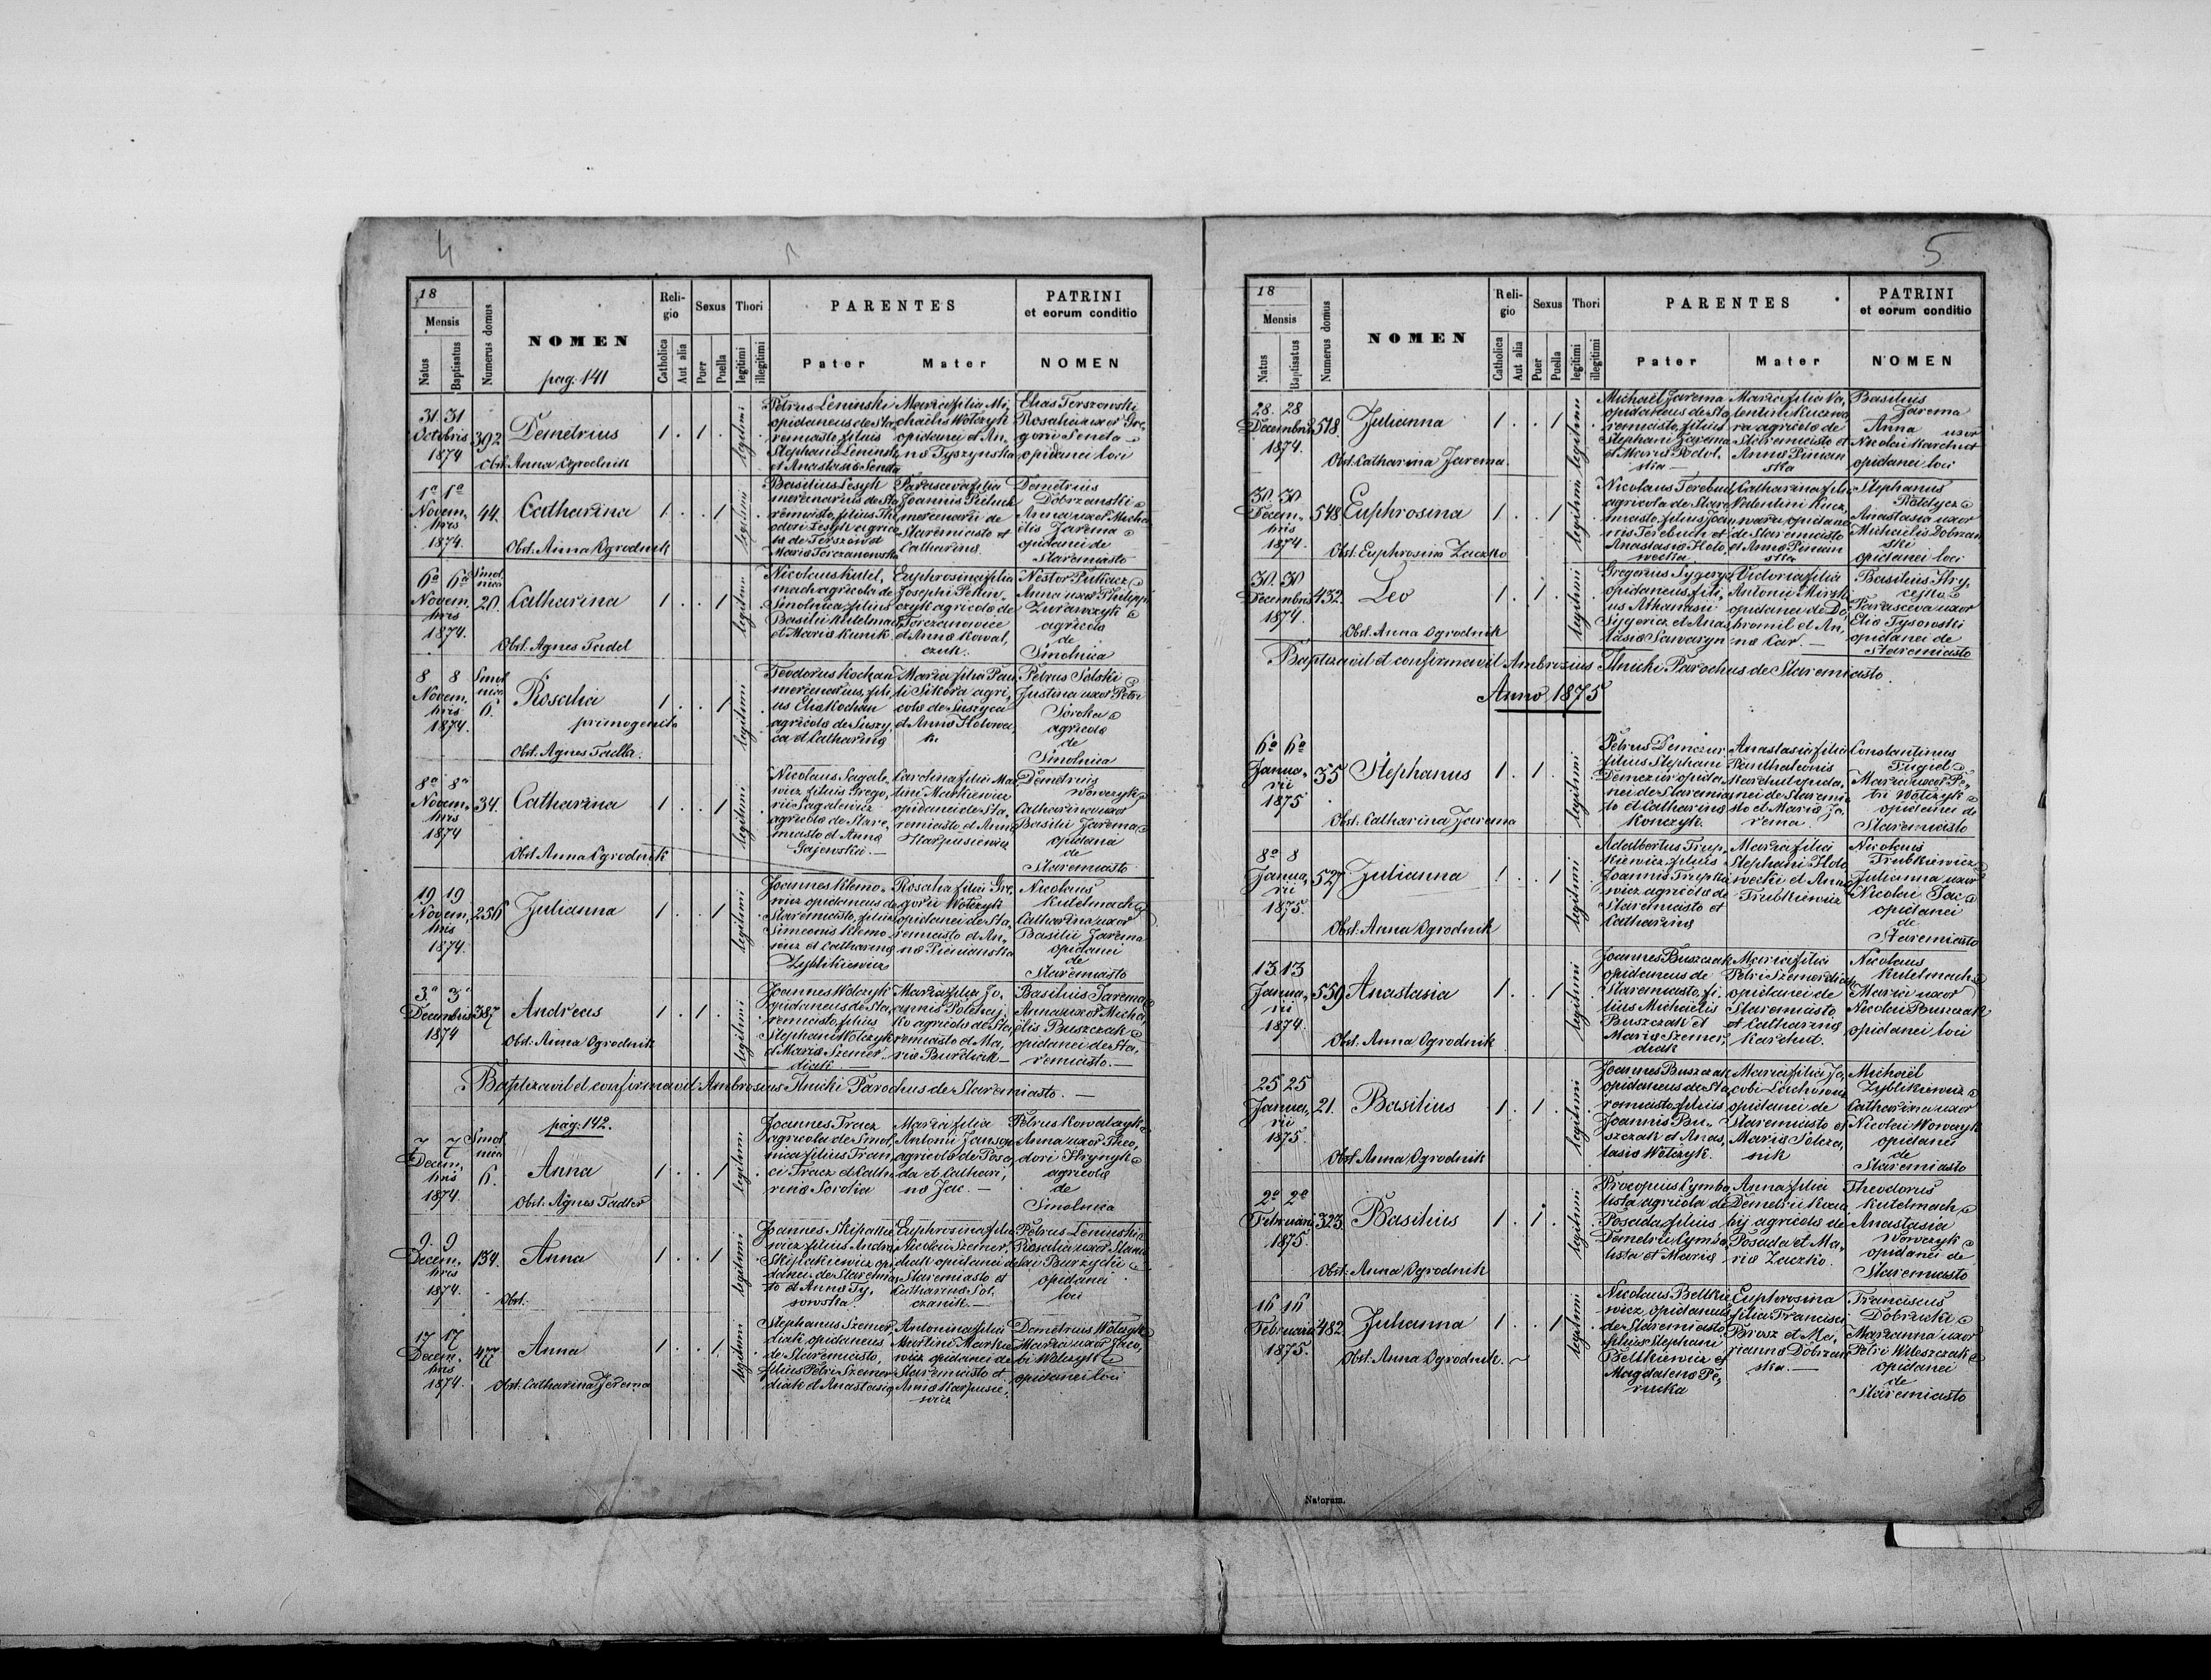 4
18
Mensis
Natus
Baptisatus
Numerus domus
NOMEN
pag. 141
Religio
Catholica
Aut alia
Sexus
Puer
Puella
Thori
legitimi
illegitimi
PARENTES
Pater
Mater
PATRINI
et eorum conditio
NOMEN
31 31
Octobris
1874
392
Demetrius
Obst. Anna Ogrodnik
1 . 1 .
legitimi
Petrus Leninski
opidaneus de Sta,
remiasto, filius
Stephani Leninski
et Anastasia Senda
Maria filia Mi,
chaëlis Wolczyk
opidanei et An,
na Tyszynska
Elias Terszowski
Rosalia uxor Gre,
gorii Seneta
opidanei loci
1a 1a
Novem,
bris
1874.
44.
Catharina
Obst. Anna Ogrodnik
1 . . 1
legitimi
Basilius Lesyk
mercenarius de Sta
remiasto, filius The
odori Lesyk agrico
la de Terszow et
Maria Torczanowska
Parasceva filia
Joannis
mercenarii de
Staremiasto et
Catharina
Demetrius
Dobrzanski
Anna uxor Micha
ëlis Jarema
opidanei de
Staremiasto
6a 6a
Novem,
bris
1874.
Smol,
nica
20.
Catharina
Obst. Agnes Tadel
1 . . 1
legitimi
Nicolaus Kutel,
mach agricola de
Smolnica filius
Basilii Kutelmach
et Maria Kunik
Euphrosina filia
Josephi
czyk agricola de
Torczanowice
et Anna Kowal,
czuk.
Nestor Pukacz
Anna uxor Philippi
Zurawczyk
agricola
de
Smolnica
8 8
Novem,
bris
1874.
Smol
nica
6.
Rosalia
primogenita
Obst. Agnes Tadla.
1 . . 1
legitimi
Teodorus Kochan
mercenarius, fili,
us Elia Kochan
agricola de Suszy,
ca et Catharina
Maria filia Pau
li Sikora agri,
cola de Suszyca
et Anna Holowa
Petrus Solski
Justina uxor Petri
Soroka
agricola
de
Smolnica
8a 8a
Novem,
bris
1874
34.
Catharina
Obst. Anna Ogrodnik
1 . . 1
legitimi
Nicolaus Sagale,
wicz filius Grego,
rii Sagalewicz
agricola de Stare,
miasto et Anna
Gajewska. —
Carolina filia Mar
tini Markiewicz
opidanei de Sta,
remiasto et Anna
Karpusiewicz
Demetrius
Wowczyk
Catharina uxor
Basilii Jarema
opidana
de
Staremiasto
19 19
Novem,
bris
1874.
256
Julianna
1 . . 1
legitimi
Joannes Klemo,
wicz opidaneus de
Staremiasto, filius
Simeonis Klemo,
wicz et Catharina
Zyblikiewicz
Rosalia filia Gre,
gorii Wolczyk
opidanei de Sta,
remiasto et An,
na Pinianska
Nicolaus
Kutelmach
Catharina uxor
Basilii Jarema
opidanei
de
Staremiasto
3a 3a
Decembris
1874
387
Andreas
Obst. Anna Ogrodnik
1 . 1 .
legitimi
Joannes Wolczyk
opidaneus de Sta,
remiasto, filius
Stephani Wolczyk
et Maria Szemer,
diak. —
Maria filia Jo,
annis
ko agricola de Sta
remiasto et Ma,
ria Burdiak —
Basilius Jarema
Anna uxor Micha,
ëlis Buszczak
opidanei de Sta,
remiasto. —
Baptizavit et confirmavit Ambrosius Ilnicki Parochus de Staremiasto. —
pag. 142.
7 7
Decem,
bris
1874.
Smol
nica
6.
Anna
Obst. Agnes Tadler
1 . . 1
legitimi
Joannes Tracz
agricola de Smol
nica filius Fran,
ci Tracz et Catha
rina Sorotia
Maria filia
Antonii Janson
agricola de Posa,
da et Cathari,
na Jac. —
Petrus Kowalczyk
Anna uxor Theo,
dori Hrynyk
agricola
de
Smolnica
9. 9
Decem,
bris
1874.
134.
Anna
Obst.
1 . . 1
legitimi
Joannes Skipakie
wicz filius Andrea
Skipakiewicz opi
danei de Staremia
sto et Anna Ty,
sowska.
Euphrosina filia
Nicolai Szemer,
diak opidanei de
Staremiasto et
Catharina Sol,
czanik. —
Petrus Leninski
Rosalia uxor Stanis
lai Burzycki
opidanei
loci
17 17
Decem,
bris
1874.
477
Anna
Obst. Catharina Jerema
1 . . 1
legitimi
Stephanus Szemer,
diak opidaneus
de Staremiasto,
filius Petri Szemer
diak et Anastasia
Antonina filia
Martini Markie
wicz opidanei de
Staremiasto et
Anna Karpusie,
wicz
Demetrius Wolczyk
Maria uxor Jaco,
bi Wolczyk
opidanei loci
5
18
Mensis
Natus
Baptisatus
Numerus domus
NOMEN
Religio
Catholica
Aut alia
Sexus
Puer
Puella
Thori
legitimi
illegitimi
PARENTES
Pater
Mater
PATRINI
et eorum conditio
NOMEN
28. 28
Decembris
1874.
518.
Julianna
Obst. Catharina Jarema.
1 . . 1
legitimi
Michaël Jarema
opidaneus de Sta
remiasto, filius
Stephani Jarema
et Maria Podol,
ska —
Maria filia Va,
lentini Kuczwa
ra agricola de
Staremiasto et
Anna Pinian
ska
Basilius
Jarema
Anna uxor
Nicolai Karchut
opidanei loci
30. 30
Decem,
bris
1874.
548
Euphrosina
Obst. Euphrosina Zaczko
1 . . 1
legitimi
Nicolaus Terebuch
agricola de Stare
miasto, filius Joan
nis Terebuch et
Anastasia Holo,
wecka
Catharina filia
Valentini Kucz,
wara opidanei
de Staremiasto
et Anna Pinian
ska
Stephanus
Anastasia uxor
Michaëlis Dobrzan
ski
opidanei loci
30. 30
Decembris
1874.
432.
Leo
Obst. Anna Ogrodnik
1 . 1 .
legitimi
Gregorius Sygerycz
opidaneus, fili,
us Athanasii
Sygericz et Anas
tasia Sawaryn
Victoria filia
Antonii Mirsk
opidanei de Do,
bromil et An,
na Car. —
Basilius Hry,
cejko
Parasceva uxor
Elia Tysowski
opidanei de
Staremiasto
Baptizavit et confirmavit Ambrosius Ilnicki Parochus de Staremiasto.
Anno 1875
6a 6a
Janua,
rii
1875
35
Stephanus
Obst. Catharina Jarema
1 . 1 .
legitimi
Petrus Demczur
filius Stephani
Demczur opida,
nei de Staremias
to et Catharina
Konczyk.
Anastasia filia
Panthaleonis
Karchut opida,
nei de Staremia
sto et Maria Ja,
rema.
Constantinus
Fugiel
Maria uxor Pe,
tri Wolczyk
opidanei de
Staremiasto
8a 8
Janua,
rii
1875.
527
Julianna
Obst. Anna Ogrodnik
1 . . 1
legitimi
Adalbertus Trup,
kiewicz, filius
Joannis Trupkie
wicz agricola de
Staremiasto et
Catharina
Maria filia
Stephani Holo
wecki et Anna
Trubkiewicz
Nicolaus
Trubkiewicz
Julianna uxor
Nicolai Jac
opidanei
de
Staremiasto
13. 13
Janua,
rii
1874.
550
Anastasia
Obst. Anna Ogrodnik
1 . . 1
legitimi
Joannes Buszczak
opidaneus de
Staremiasto, fi,
lius Michaëlis
Buszczak et
Maria Szemer,
diak
Maria filia
Petri Szemerdiak
opidanei de
Staremiasto
et Catharina
Karchut.
Nicolaus
Kutelmach
Maria uxor
Nicolai Buszczak
opidanei loci
25 25
Janua,
rii
1875.
21.
Basilius
Obst. Anna Ogrodnik
1 . 1 .
legitimi
Joannes Buszczak
opidaneus de Sta
remiasto filius
Joannis Bu,
szczak et Anas,
tasia Wolczyk.
Maria filia Ja,
cobi Lachowicz
opidanei de
Staremiasto et
Maria Solcza,
nik
Michaël
Zyblikiewicz
Catharina uxor
Nicolai Wowczyk
opidanei
de
Staremiasto
2a 2a
Februarii
1875.
323
Basilius
Obst. Anna Ogrodnik
1 . 1 .
legitimi
Procopius Cymba
lista agricola de
Posada filius
Demetrii Cymba,
lista et Maria
Anna filia
Demetrii
agricola de
Posada et Ma,
ria Zaczko.
Theodorus
Kutelmach
Anastasia
Wowczyk
opidanei de
Staremiasto
16 16
Februarii
1875.
482
Julianna
Obst. Anna Ogrodnik.
1 . . 1
legitimi
Nicolaus Beltkie
wicz opidaneus
de Staremiasto
filius Stephani
Beltkiewicz et
Magdalena Pe,
rucka
Euphrosina
filia Francisci
Brosz et Ma,
rianna Dobrzan
ska. —
Franciscus
Dobrucki
Marianna uxor
Petri
opidanei
de
Staremiasto
Natorum.